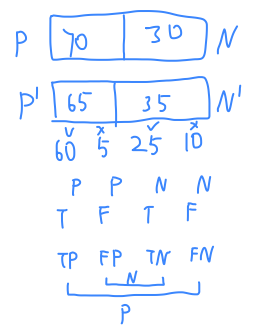 P 70 30 N
P' 65 35 N'
60 5 25 10
P P N N
T F T F
TP FP TN FN
N
P